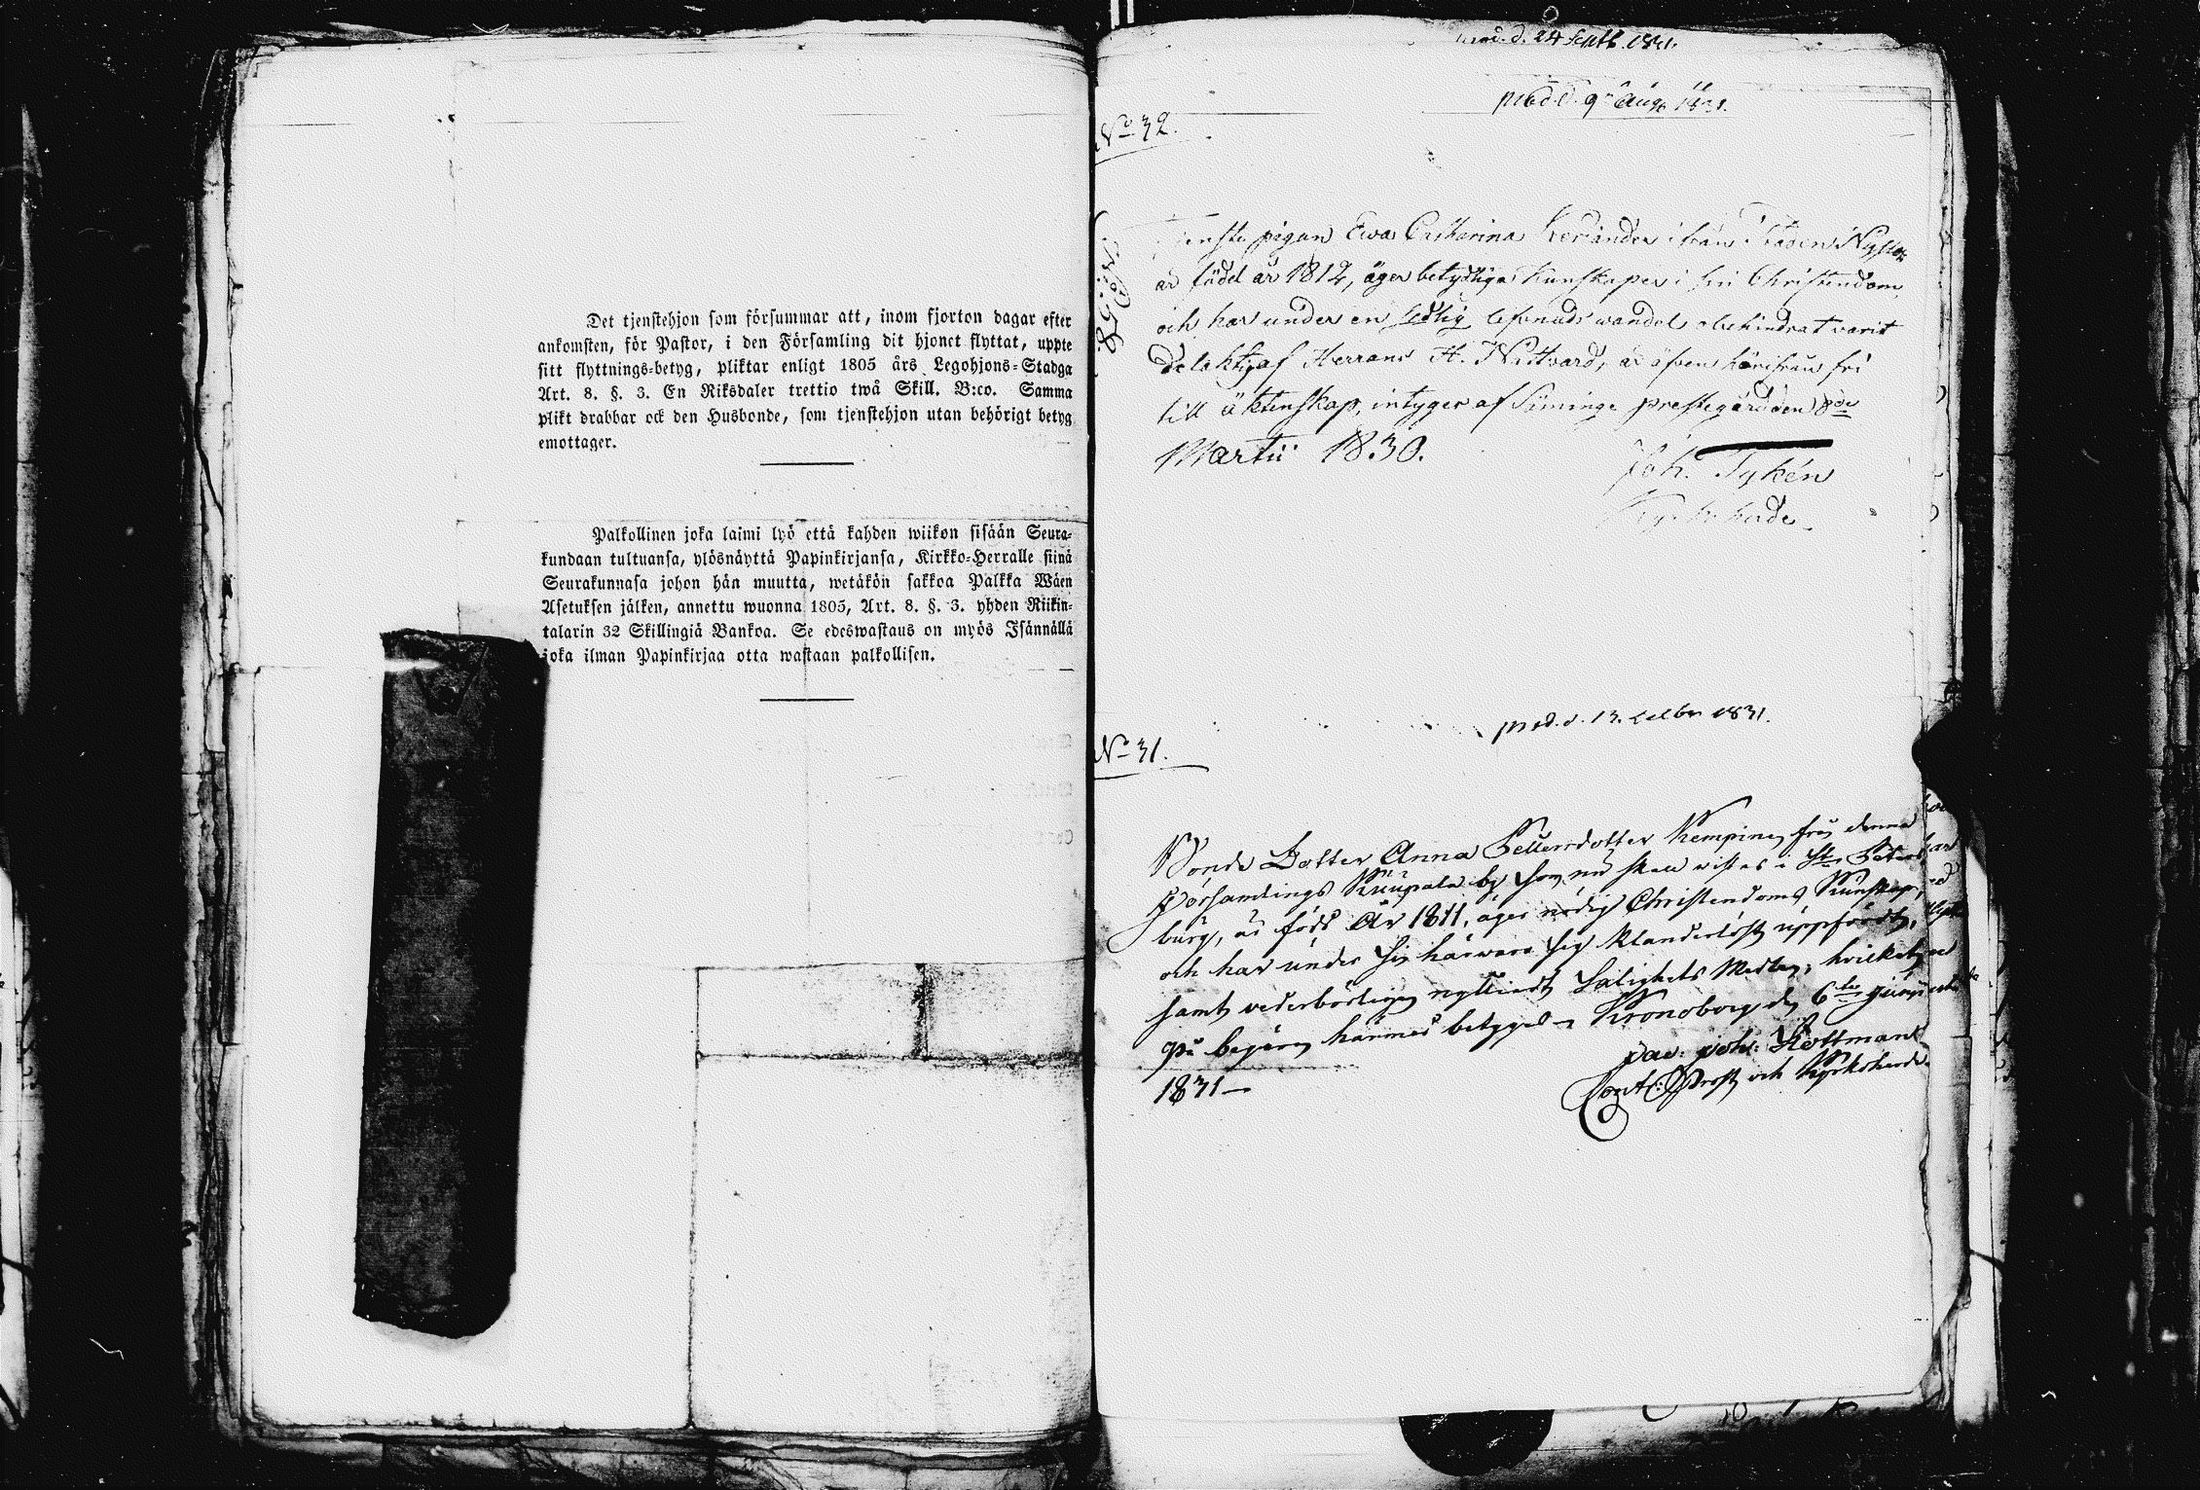 Det tjenstehjon som försummar att, inom fjorton dagar efter
ankomsten, för Pastor, i den Församling dit hjonet flyttat, uppte
sitt flyttnings-betyg, pliktar enligt 1805 års Legohjons-Stadga
Art. 8. §. 3. En Riksdaler trettio twå Skill. B:co. Samma
plikt drabbar ock den Husbonde, som tjenstehjon utan behörigt betyg
emottager.
Palkollinen joka laimi lyö että kahden wiikon sisään Seura-
kundaan tultuansa, ylösnäyttä Papinkirjansa, Kirkko-Herralle siinä
Seurakunnasa johon hän muutta, wetäkön sakkoa Palkka Wäen
Asetuksen jälken, annettu wuonna 1805, Art. 8. §. 3. yhden Riikin-
talarin 32 Skillingiä Bankoa. Se edeswastaus on myös Isännällä
joka ilman Papinkirjaa otta wastaan palkollisen.
d. 24 Septb. 1831.
prod. d. 9 Aug 1831.
No 32.
pigan Ewa Catharina ifrån Staden Nyslott
är född år 1812, äger betydliga kunskaper i sin Christendom,
och har under en sedlig lefnads wandel obehindrat varit
delaktig af Herrans H. Nattvard, är äfven härifrån fri
till äktenskap, intygar af Säminge prestegård den 8de
Martii 1830.
Joh. Tykén
Kyrkoherde
prod. d. 13. 1831.
No 31.
Bonde Dotter Anna Pettersdotter Kempinen från denna
Församlings by som nu skall vistas i St. Peters-
burg, är född År 1811, äger nödig Christendoms Kunskap,
och har under sin härvaro sig klanderlöst uppfördt,
samt vederbörligen nyttjadt Salighets Medlen; hvilket
på begäran härmed betygas. Kronoborg den 6te Junii
1831 —
Joh: Kottman
Cont: Prost och Kyrkoherde.